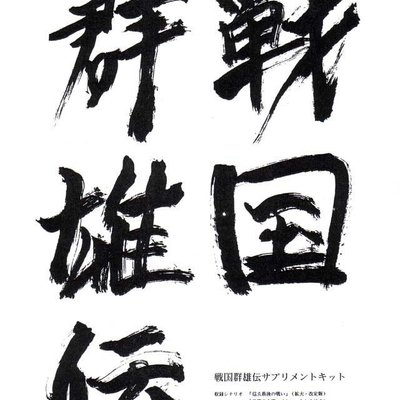 戦国
群雄伝
戦国群雄伝サプリメントキット
収録シナリオ 『信久最後の戦い』(拡大・改定版)